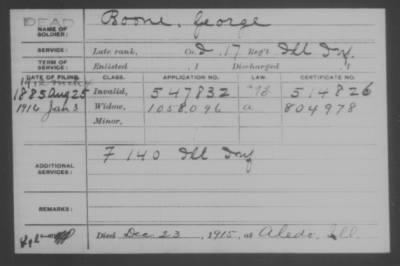 DEAD
NAME OF SOLDIER: Boone, George
SERVICE: Late rank, Co. D, 17 Reg't Ill Inf.
TERM OF SERVICE: Enlisted , 1 Discharged , 1
DATE OF FILING. CLASS. APPLICATION NO. LAW. CERTIFICATE NO.
1885 Aug 25 Invalid, 547832 514826
1916 Jan 3 Widow, 1058096 a 804978
Minor,
ADDITIONAL SERVICES: F 140 Ill Inf
REMARKS:
Died Dec 23, 1915, at Aledo, Ill.